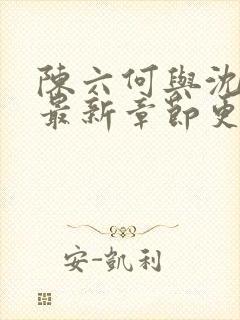 陳六何與沈
最新章節更
安-凱利